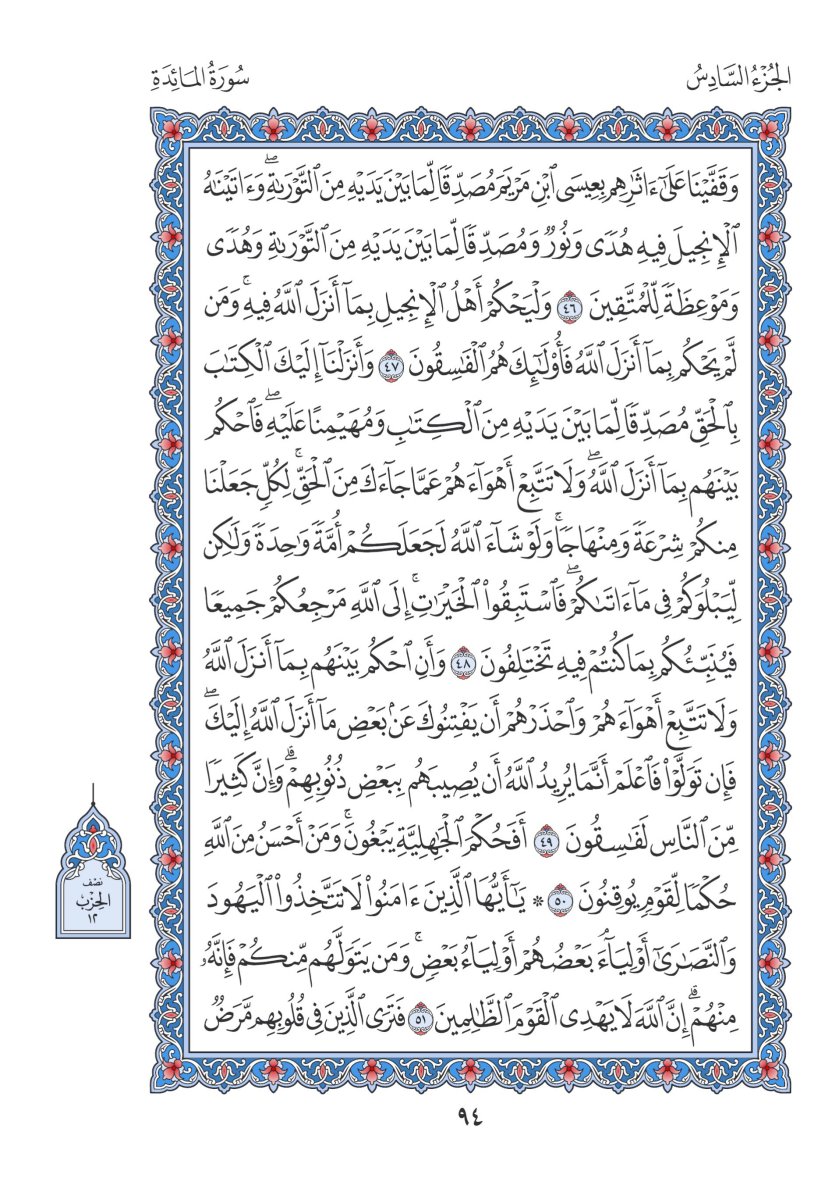 الجُزْءُ السَّادِسُ
سُورَةُ المَائِدَةِ
وَقَفَّيْنَا عَلَىٰٓ ءَاثَٰرِهِم بِعِيسَى ٱبْنِ مَرْيَمَ مُصَدِّقًا لِّمَا بَيْنَ يَدَيْهِ مِنَ ٱلتَّوْرَىٰةِۖ وَءَاتَيْنَٰهُ
ٱلْإِنجِيلَ فِيهِ هُدًى وَنُورٌ وَمُصَدِّقًا لِّمَا بَيْنَ يَدَيْهِ مِنَ ٱلتَّوْرَىٰةِ وَهُدًى
وَمَوْعِظَةً لِّلْمُتَّقِينَ ٤٦ وَلْيَحْكُمْ أَهْلُ ٱلْإِنجِيلِ بِمَآ أَنزَلَ ٱللَّهُ فِيهِۚ وَمَن
لَّمْ يَحْكُم بِمَآ أَنزَلَ ٱللَّهُ فَأُو۟لَٰٓئِكَ هُمُ ٱلْفَٰسِقُونَ ٤٧ وَأَنزَلْنَآ إِلَيْكَ ٱلْكِتَٰبَ
بِٱلْحَقِّ مُصَدِّقًا لِّمَا بَيْنَ يَدَيْهِ مِنَ ٱلْكِتَٰبِ وَمُهَيْمِنًا عَلَيْهِۖ فَٱحْكُم
بَيْنَهُم بِمَآ أَنزَلَ ٱللَّهُۖ وَلَا تَتَّبِعْ أَهْوَآءَهُمْ عَمَّا جَآءَكَ مِنَ ٱلْحَقِّۚ لِكُلٍّ جَعَلْنَا
مِنكُمْ شِرْعَةً وَمِنْهَاجًاۚ وَلَوْ شَآءَ ٱللَّهُ لَجَعَلَكُمْ أُمَّةً وَٰحِدَةً وَلَٰكِن
لِّيَبْلُوَكُمْ فِى مَآ ءَاتَىٰكُمْۖ فَٱسْتَبِقُوا۟ ٱلْخَيْرَٰتِۚ إِلَى ٱللَّهِ مَرْجِعُكُمْ جَمِيعًا
فَيُنَبِّئُكُم بِمَا كُنتُمْ فِيهِ تَخْتَلِفُونَ ٤٨ وَأَنِ ٱحْكُم بَيْنَهُم بِمَآ أَنزَلَ ٱللَّهُ
وَلَا تَتَّبِعْ أَهْوَآءَهُمْ وَٱحْذَرْهُمْ أَن يَفْتِنُوكَ عَنۢ بَعْضِ مَآ أَنزَلَ ٱللَّهُ إِلَيْكَۖ
فَإِن تَوَلَّوْا۟ فَٱعْلَمْ أَنَّمَا يُرِيدُ ٱللَّهُ أَن يُصِيبَهُم بِبَعْضِ ذُنُوبِهِمْۗ وَإِنَّ كَثِيرًا
مِّنَ ٱلنَّاسِ لَفَٰسِقُونَ ٤٩ أَفَحُكْمَ ٱلْجَٰهِلِيَّةِ يَبْغُونَۚ وَمَنْ أَحْسَنُ مِنَ ٱللَّهِ
حُكْمًا لِّقَوْمٍ يُوقِنُونَ ٥٠ * يَٰٓأَيُّهَا ٱلَّذِينَ ءَامَنُوا۟ لَا تَتَّخِذُوا۟ ٱلْيَهُودَ
وَٱلنَّصَٰرَىٰٓ أَوْلِيَآءَۘ بَعْضُهُمْ أَوْلِيَآءُ بَعْضٍۚ وَمَن يَتَوَلَّهُم مِّنكُمْ فَإِنَّهُۥ
مِنْهُمْۗ إِنَّ ٱللَّهَ لَا يَهْدِى ٱلْقَوْمَ ٱلظَّٰلِمِينَ ٥١ فَتَرَى ٱلَّذِينَ فِى قُلُوبِهِم مَّرَضٌ
نِصْف
الحِزْب
١٢
٩٤